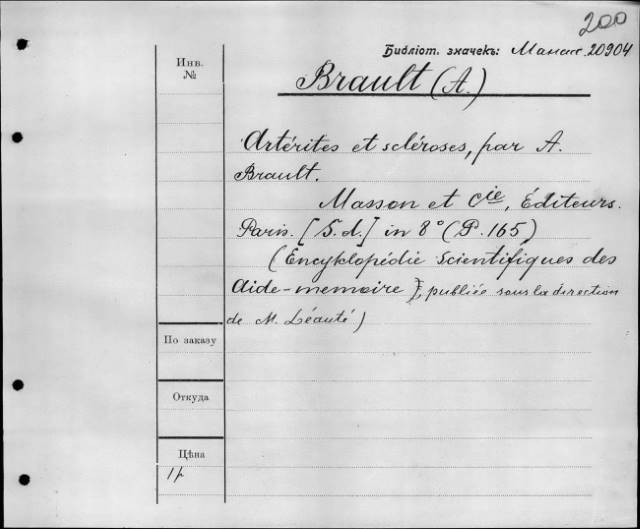 200
Библіот. значекъ: Манас. 20904
Инв.
№
Brault (A.)
Artérites et scléroses, par A.
Brault.
Masson et Cie, Éditeurs.
Paris. [S. d.] in 8° (P. 165)
(Encyklopédie Scientifiques des
Aide-memoire), publiée sous la direction
de M. Léauté)
По заказу
Откуда
Цѣна